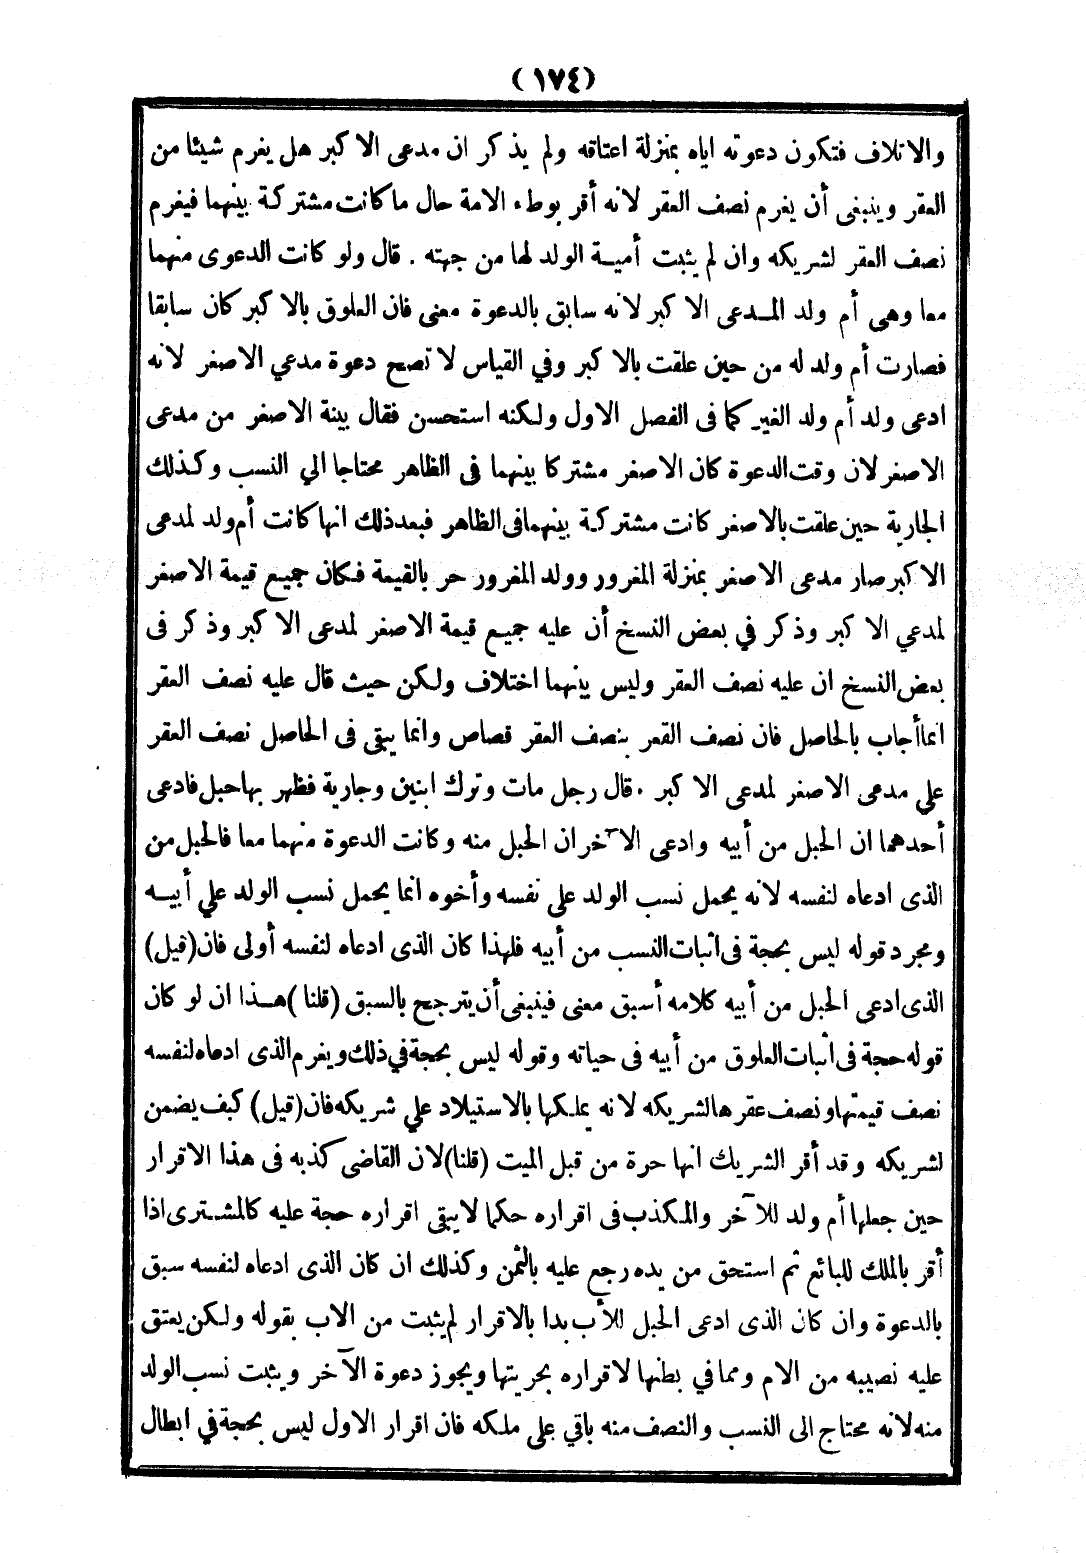 (١٧٤)
والاتلاف فتكون دعوته اياه بمنزلة اعتاقه ولم يذكر ان مدعى الاكبر هل يغرم شيئا من
العقر وينبغى أن يغرم نصف العقر لانه أقر بوطء الامة حال ما كانت مشتركة بينهما فيغرم
نصف العقر لشريكه وان لم يثبت أمية الولد لها من جهته . قال ولو كانت الدعوى منهما
معا وهى أم ولد المدعى الاكبر لانه سابق بالدعوة معنى فان العلوق بالاكبر كان سابقا
فصارت أم ولد له من حين علقت بالاكبر وفي القياس لا تصح دعوة مدعي الاصغر لانه
ادعى ولد أم ولد الغير كما فى الفصل الاول ولكنه استحسن فقال بينة الاصغر من مدعى
الاصغر لان وقت الدعوة كان الاصغر مشتركا بينهما فى الظاهر محتاجا الي النسب وكذلك
الجارية حين علقت بالاصغر كانت مشتركة بينهما فى الظاهر فبعد ذلك انها كانت أم ولد لمدعى
الاكبر صار مدعى الاصغر بمنزلة المغرور وولد المغرور حر بالقيمة فكان جميع قيمة الاصغر
لمدعي الاكبر وذكر في بعض النسخ أن عليه جميع قيمة الاصغر لمدعى الاكبر وذكر فى
بعض النسخ ان عليه نصف العقر وليس بينهما اختلاف ولكن حيث قال عليه نصف العقر
انما أجاب بالحاصل فان نصف القعر بنصف العقر قصاص وانما يبقى فى الحاصل نصف العقر
علي مدعى الاصغر لمدعى الاكبر . قال رجل مات وترك ابنين وجارية فظهر بها حبل فادعى
أحدهما ان الحبل من أبيه وادعى الآخر ان الحبل منه وكانت الدعوة منهما معا فالحبل من
الذى ادعاه لنفسه لانه يحمل نسب الولد على نفسه وأخوه انما يحمل نسب الولد علي أبيه
ومجرد قوله ليس بحجة فى اثبات النسب من أبيه فلهذا كان الذى ادعاه لنفسه أولى فان (قيل)
الذى ادعى الحبل من أبيه كلامه أسبق معنى فينبغى أن يترجح بالسبق (قلنا) هذا ان لو كان
قوله حجة فى اثبات العلوق من أبيه فى حياته وقوله ليس بحجة في ذلك ويغرم الذى ادعاه لنفسه
نصف قيمتها ونصف عقرها لشريكه لانه يملكها بالاستيلاد علي شريكه فان (قيل) كيف يضمن
لشريكه وقد أقر الشريك انها حرة من قبل الميت (قلنا) لان القاضى كذبه فى هذا الاقرار
حين جعلها أم ولد للآخر والمكذب فى اقراره حكما لا يبقى اقراره حجة عليه كالمشترى اذا
أقر بالملك للبائع ثم استحق من يده رجع عليه بالثمن وكذلك ان كان الذى ادعاه لنفسه سبق
بالدعوة وان كان الذى ادعى الحبل للأب بدا بالاقرار لم يثبت من الاب بقوله ولكن يعتق
عليه نصيبه من الام ومما في بطنها لاقراره بحريتها ويجوز دعوة الآخر ويثبت نسب الولد
منه لانه محتاج الى النسب والنصف منه باقي على ملكه فان اقرار الاول ليس بحجة في ابطال